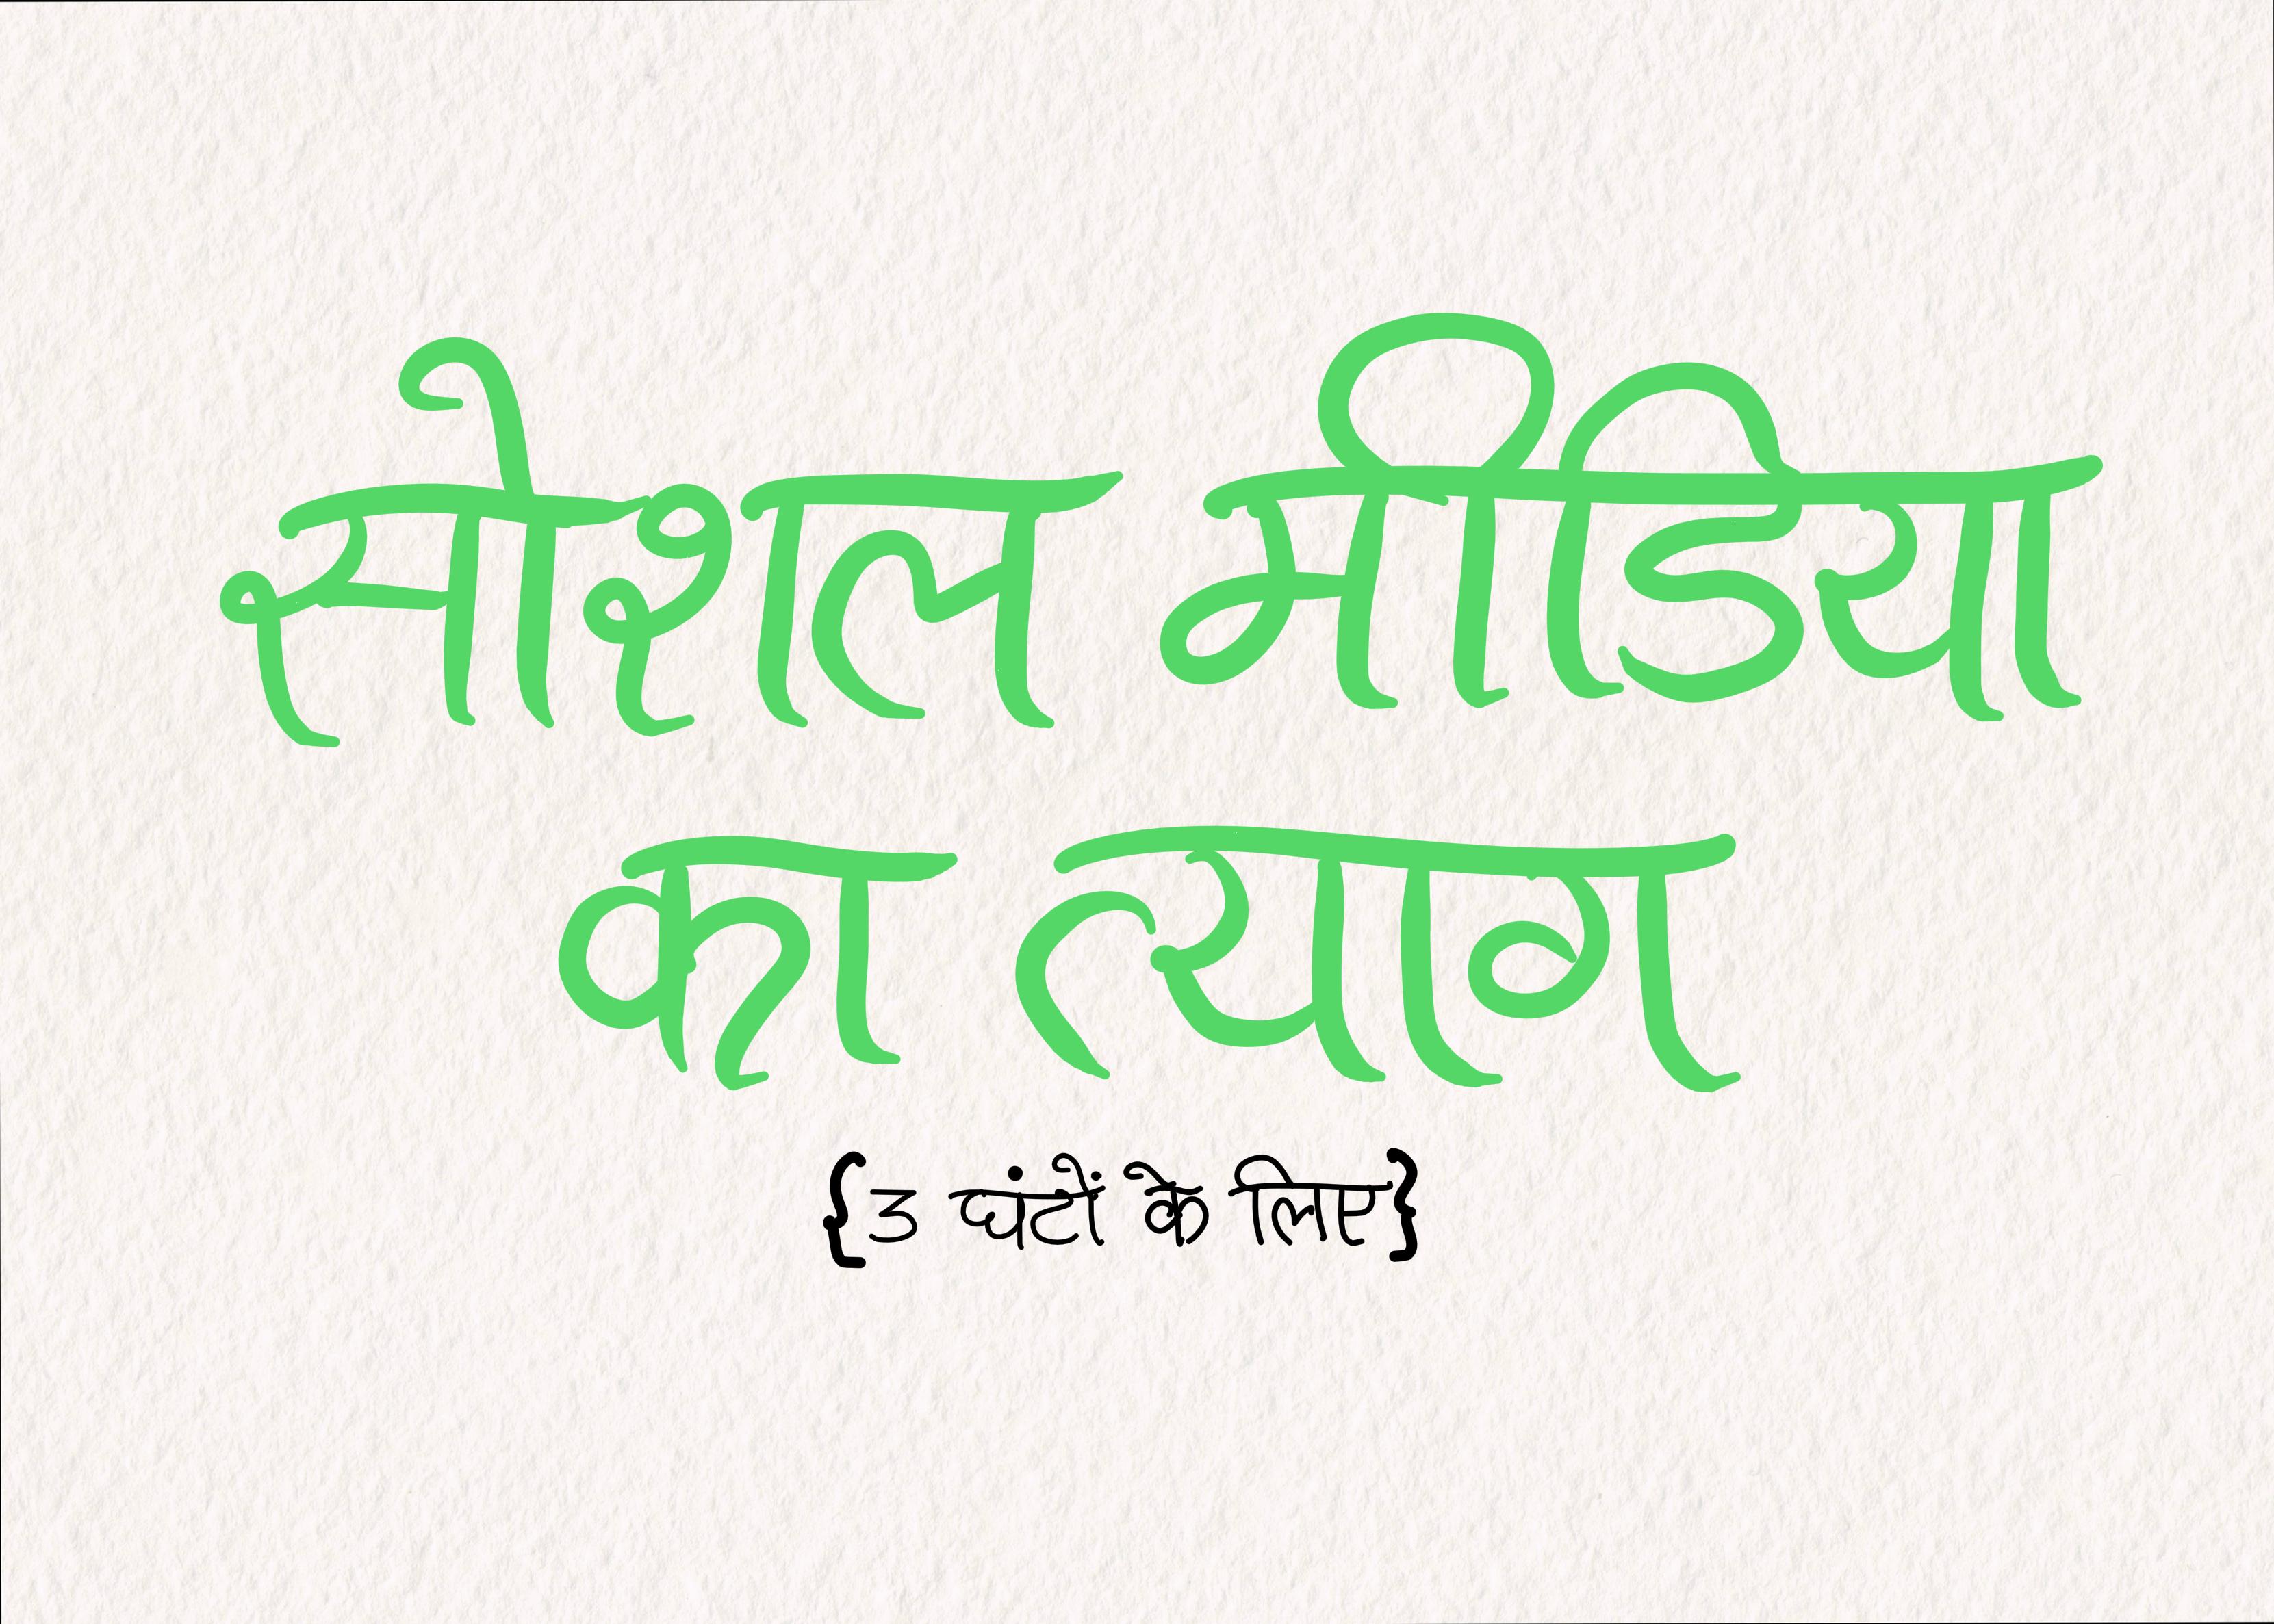 सोशल मीडिया
का त्याग
{3 घंटों के लिए}